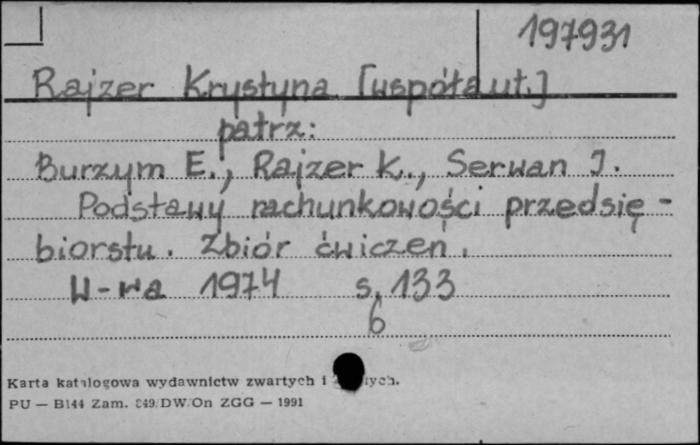 197931
Rajzer Krystyna [współaut.]
patrz:
Burzym E., Rajzer K., Serwan J.
Podstawy rachunkowości przedsię-
biorstw. Zbiór ćwiczeń.
W-wa 1974 s. 133
6
Karta katalogowa wydawnictw zwartych i
PU — B144 Zam. 849/DW/On ZGG — 1991